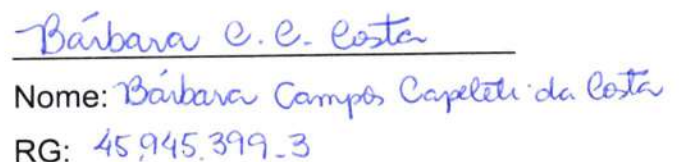 Bárbara C. C. Costa
Nome: Bárbara Campos Capeleti da Costa
RG: 45.945.399-3